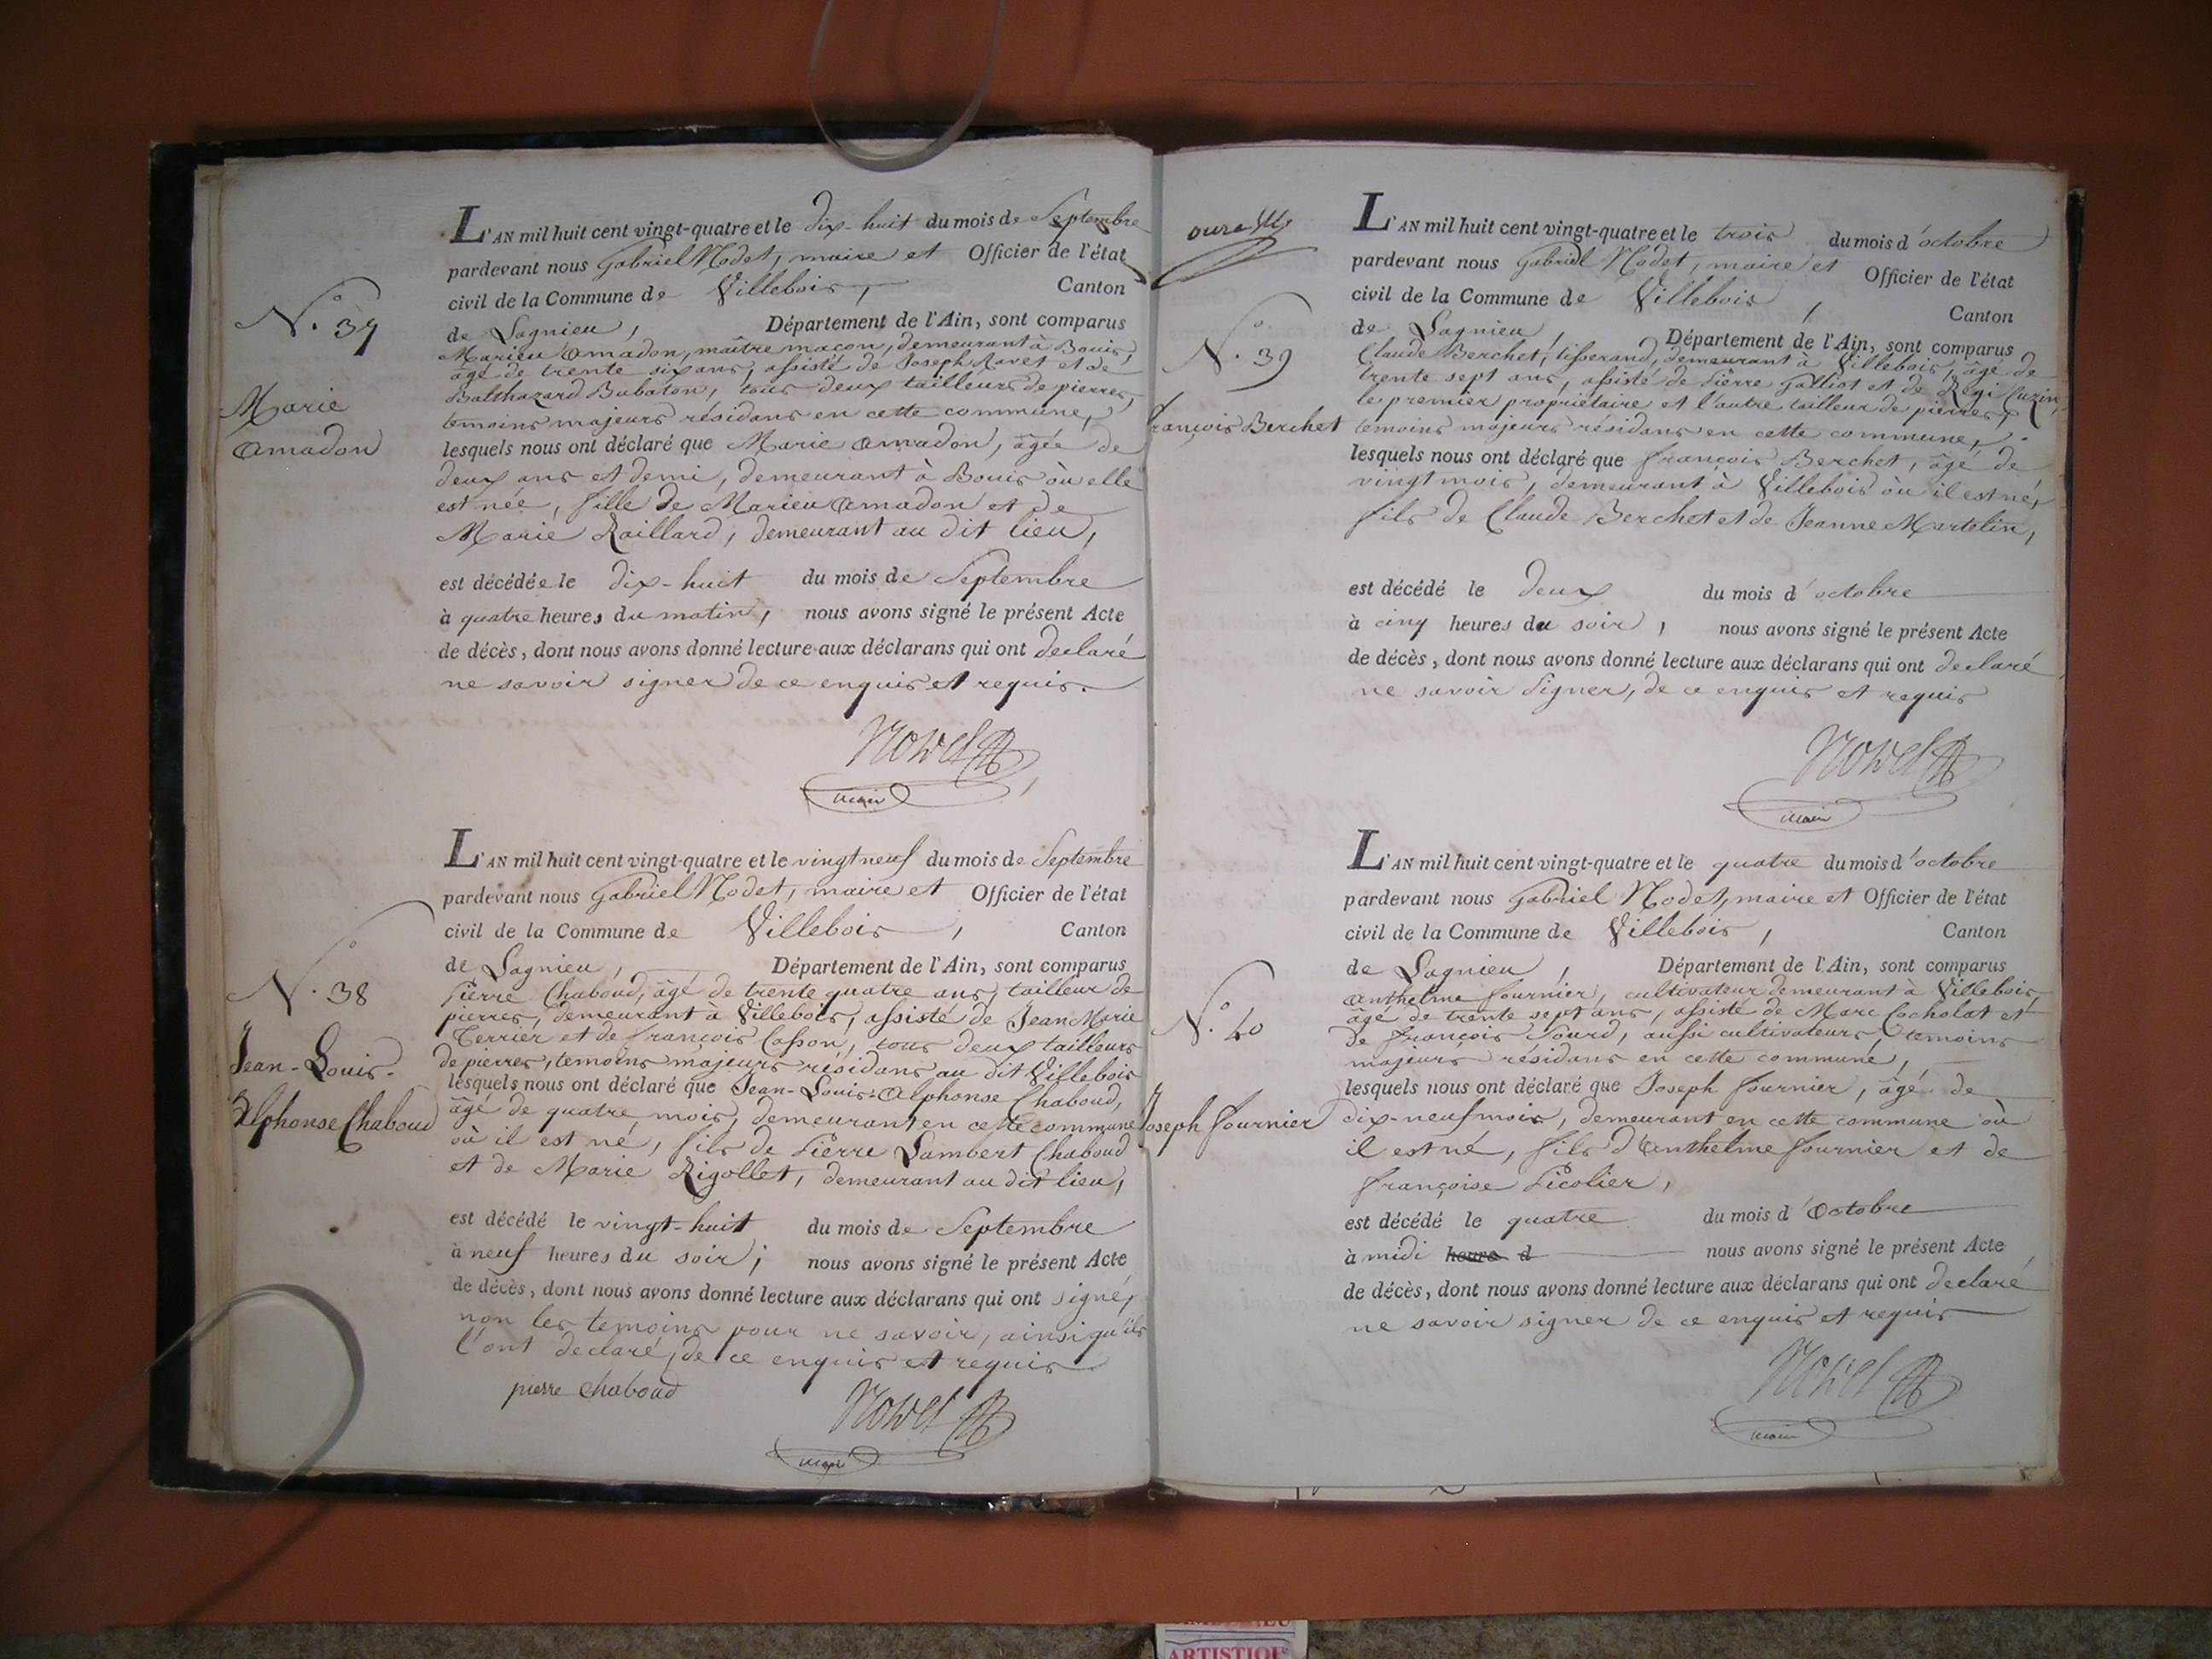 L'AN mil huit cent vingt-quatre et le dix-huit du mois de Septembre
pardevant nous Gabriel Nodet, maire et Officier de l'état
civil de la Commune de Villebois, Canton
de Lagnieu, Département de l'Ain, sont comparus
Marieu Amadon, maître maçon, demeurant à Bouis,
âgé de trente six ans, assisté de Joseph Ravet et de
Balthazard Bubaton, tous deux tailleurs de pierres,
temoins majeurs résidans en cette commune,
lesquels nous ont déclaré que Marie Amadon, âgée de
deux ans et demi, demeurant à Bouis où elle
est née, fille de Marieu Amadon et de
Marie Raillard, demeurant au dit lieu,
est décédée le dix-huit du mois de Septembre
à quatre heures du matin, nous avons signé le présent Acte
de décès, dont nous avons donné lecture aux déclarans qui ont declaré
ne savoir signer de ce enquis et requis.
Nodet
maire
N.° 37
Marie
Amadon
L'AN mil huit cent vingt-quatre et le vingt neuf du mois de Septembre
pardevant nous Gabriel Nodet, maire et Officier de l'état
civil de la Commune de Villebois, Canton
de Lagnieu, Département de l'Ain, sont comparus
Pierre Chaboud, âgé de trente quatre ans, tailleur de
pierres, demeurant à Villebois, assisté de Jean Marie
Terrier et de François Casson, tous deux tailleurs
de pierres, temoins majeurs résidans au dit Villebois
lesquels nous ont déclaré que Jean-Louis-Alphonse Chaboud,
âgé de quatre mois, demeurant en cette commune
où il est né, fils de Pierre Lambert Chaboud
et de Marie Rigollet, demeurant au dit lieu,
est décédé le vingt-huit du mois de Septembre
à neuf heures du soir; nous avons signé le présent Acte
de décès, dont nous avons donné lecture aux déclarans qui ont signé,
non les temoins pour ne savoir, ainsi qu'ils
l'ont declaré, de ce enquis et requis
pierre chaboud Nodet
maire
N.° 38
Jean-Louis-
Alphonse Chaboud
L'AN mil huit cent vingt-quatre et le trois du mois d'octobre
pardevant nous Gabriel Nodet, maire et Officier de l'état
civil de la Commune de Villebois, Canton
de Lagnieu, Département de l'Ain, sont comparus
Claude Berchet, tisserand, demeurant à Villebois, âgé de
trente sept ans, assisté de Pierre Galliot et de Régi Cuzin,
le premier propriétaire et l'autre tailleur de pierres,
temoins majeurs résidans en cette commune,
lesquels nous ont déclaré que François Berchet, âgé de
vingt mois, demeurant à Villebois où il est né,
fils de Claude Berchet et de Jeanne Martelin,
est décédé le deux du mois d'octobre
à cinq heures du soir, nous avons signé le présent Acte
de décès, dont nous avons donné lecture aux déclarans qui ont declaré
ne savoir signer, de ce enquis et requis
Nodet
maire
N.° 39
François Berchet
L'AN mil huit cent vingt-quatre et le quatre du mois d'octobre
pardevant nous Gabriel Nodet, maire et Officier de l'état
civil de la Commune de Villebois, Canton
de Lagnieu, Département de l'Ain, sont comparus
Anthelme Fournier, cultivateur demeurant à Villebois,
âgé de trente sept ans, assisté de Marc Cocholat et
de François Sourd, aussi cultivateurs, temoins
majeurs résidans en cette commune,
lesquels nous ont déclaré que Joseph Fournier, âgé de
dix-neuf mois, demeurant en cette commune où
il est né, fils d'Anthelme Fournier et de
Françoise Picolier,
est décédé le quatre du mois d'Octobre
à midi heures d nous avons signé le présent Acte
de décès, dont nous avons donné lecture aux déclarans qui ont declaré
ne savoir signer de ce enquis et requis
Nodet
maire
N.° 40
Joseph Fournier
ARTISTIQU